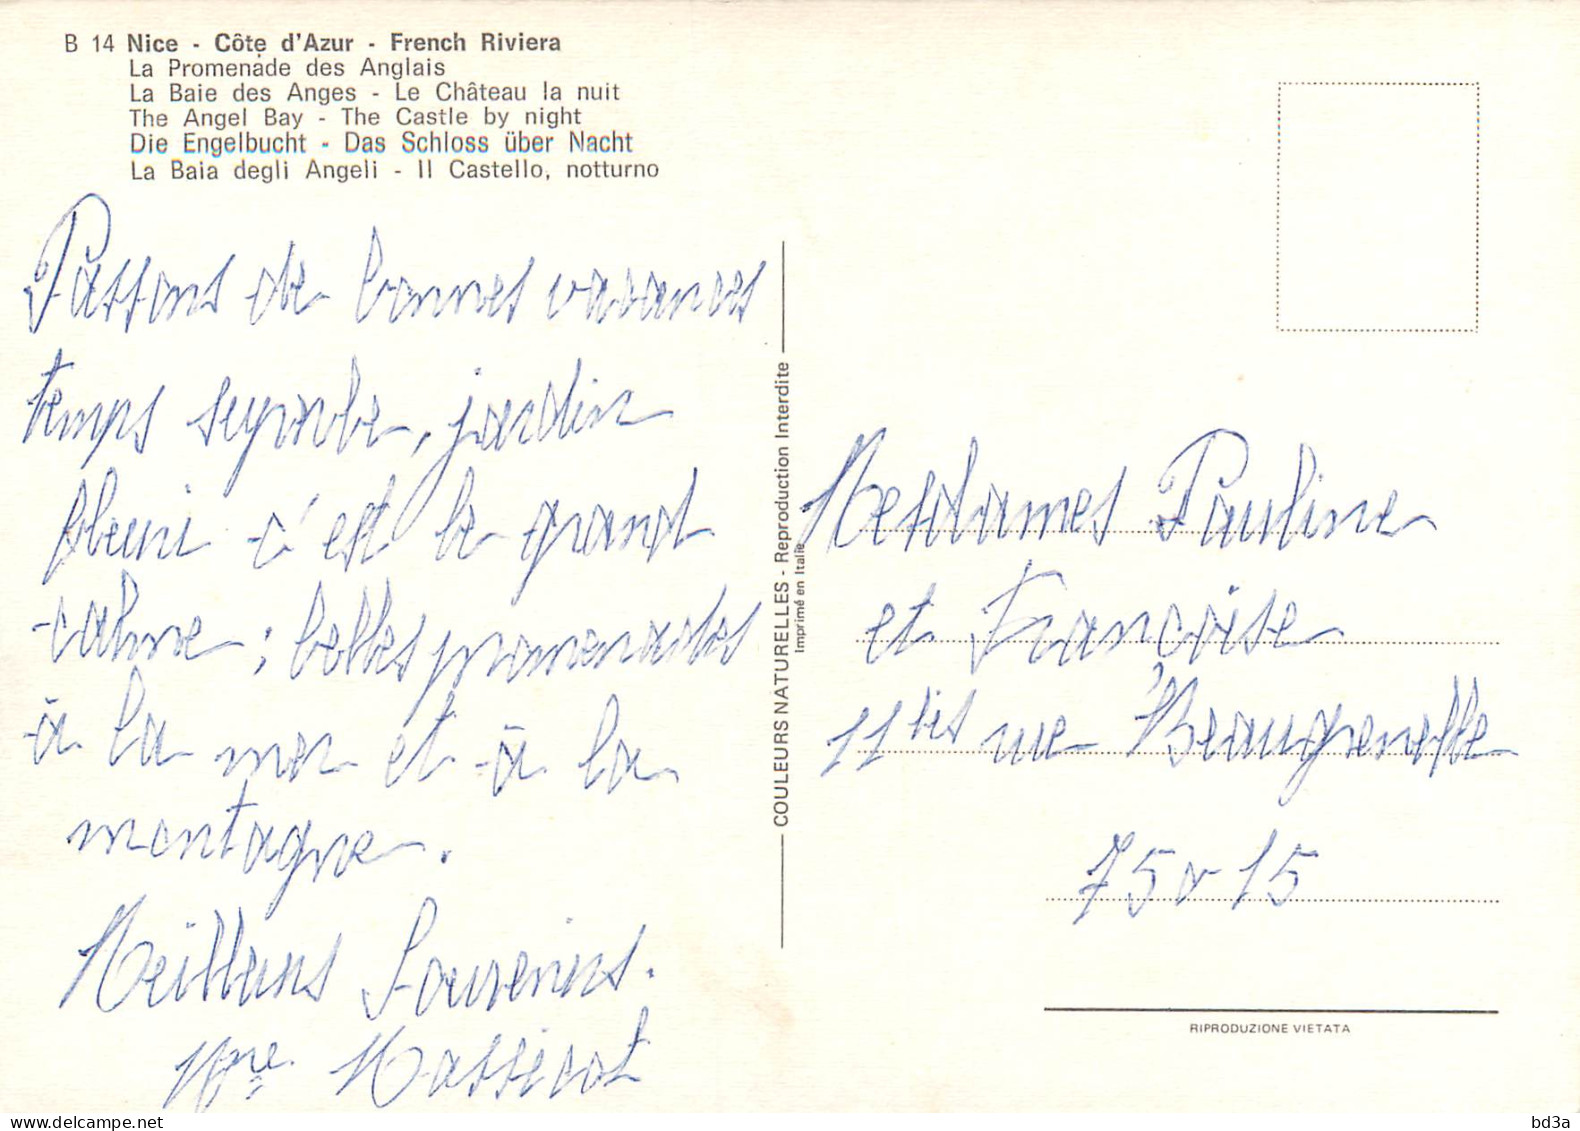 B 14 Nice - Côte d'Azur - French Riviera
La Promenade des Anglais
La Baie des Anges - Le Château la nuit
The Angel Bay - The Castle by night
Die Engelbucht - Das Schloss über Nacht
La Baia degli Angeli - Il Castello, notturno
Passons de bonnes vacances
temps superbe, jardin
fleuri c'est le grand
calme ; belles promenades
à la mer et à la
montagne.
Meilleurs Souvenirs.
Mme Massicot
COULEURS NATURELLES - Reproduction Interdite
Imprimé en Italie
Mesdames Pauline
et Françoise
11 bis rue Beaugrenelle
75015
RIPRODUZIONE VIETATA
delcampe.net
bd3a